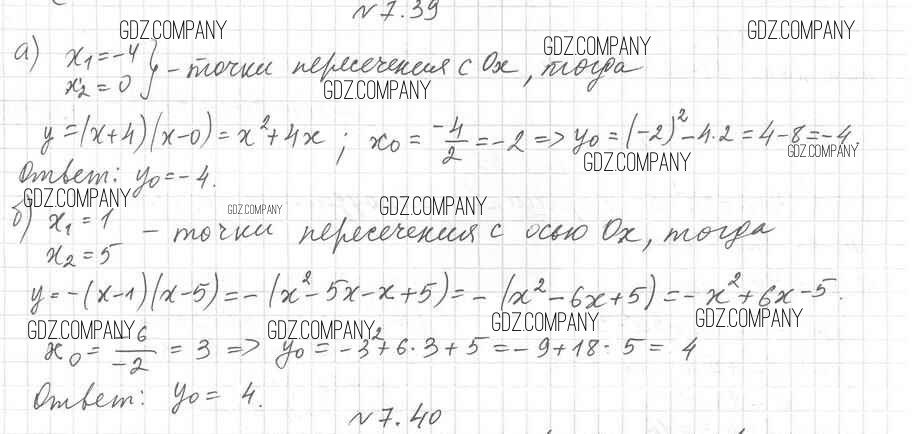 №7.39
GDZ.COMPANY
GDZ.COMPANY
а) x₁ = -4
x₂ = 0 } - точки пересечения с Ox, тогда
GDZ.COMPANY
GDZ.COMPANY
y = (x+4)(x-0) = x² + 4x ; x₀ = -4/2 = -2 => y₀ = (-2)² - 4·2 = 4 - 8 = -4.
GDZ.COMPANY
GDZ.COMPANY
Ответ: y₀ = -4.
GDZ.COMPANY
GDZ.COMPANY
GDZ.COMPANY
б) x₁ = 1
x₂ = 5 - точки пересечения с осью Ox, тогда
y = -(x-1)(x-5) = -(x² - 5x - x + 5) = -(x² - 6x + 5) = -x² + 6x - 5.
GDZ.COMPANY
GDZ.COMPANY
GDZ.COMPANY
GDZ.COMPANY
x₀ = -6/-2 = 3 => y₀ = -3² + 6·3 + 5 = -9 + 18 - 5 = 4
Ответ: y₀ = 4.
№7.40